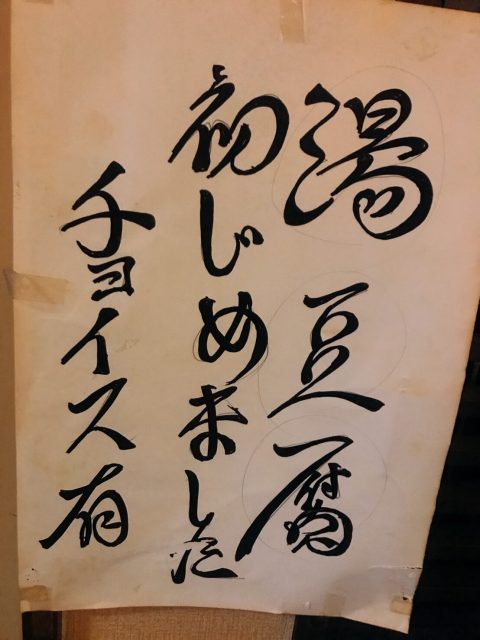 湯豆腐
初じめました
チョイス有